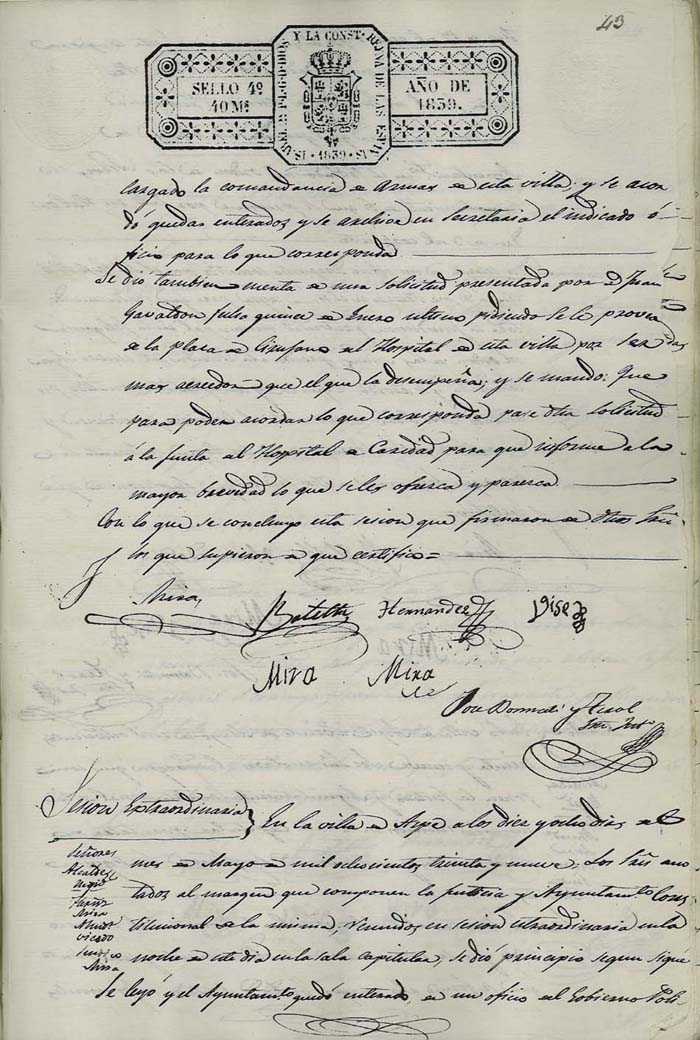 43
ISABEL 2ª P.L.G.D. DIOS Y LA CONST. REYNA DE LAS ESPAÑAS
SELLO 4º
40 Mˢ
AÑO DE
1839.
1839
cargado la comandancia de Armas de esta villa; y se acor
dó quedar enterados y se archive en Secretaria el indicado ó
ficio para lo que corresponda
Se dió tambien cuenta de una solicitud presentada por D Juan
Gavaldon fecha quince de Enero ultimo pidiendo se le provea
de la plaza de Cirujano del Hospital de esta villa por ser
mas acreedor que el que la desempeña; y se mandó: Que
para poder acordar lo que corresponda pase dha solicitud
á la Junta del Hospital de Caridad para que informe a la
mayor brevedad lo que se les ofresca y paresca
Con lo que se concluyo esta sesion que firmaron de dhos Señ
los que supieron de que certifico =
Mira
Botella
Hernandez
Mira
Mira
Jose y
Sesion Extraordinaria
En la villa de Aspe a los diez y ocho dias del
Señores
Alcaldes
Mira
Sindico
Mira
mes de Mayo de mil ochocientos treinta y nueve. Los Señ ano
tados al margen que componen la Justicia y Ayuntamto Cons
titucional de la misma, reunidos en sesion extraordinaria en la
noche de este dia en la sala capitular, se dió principio segun sigue
Se leyó y el Ayuntamto quedó enterado, de un oficio del Gobierno Poli-